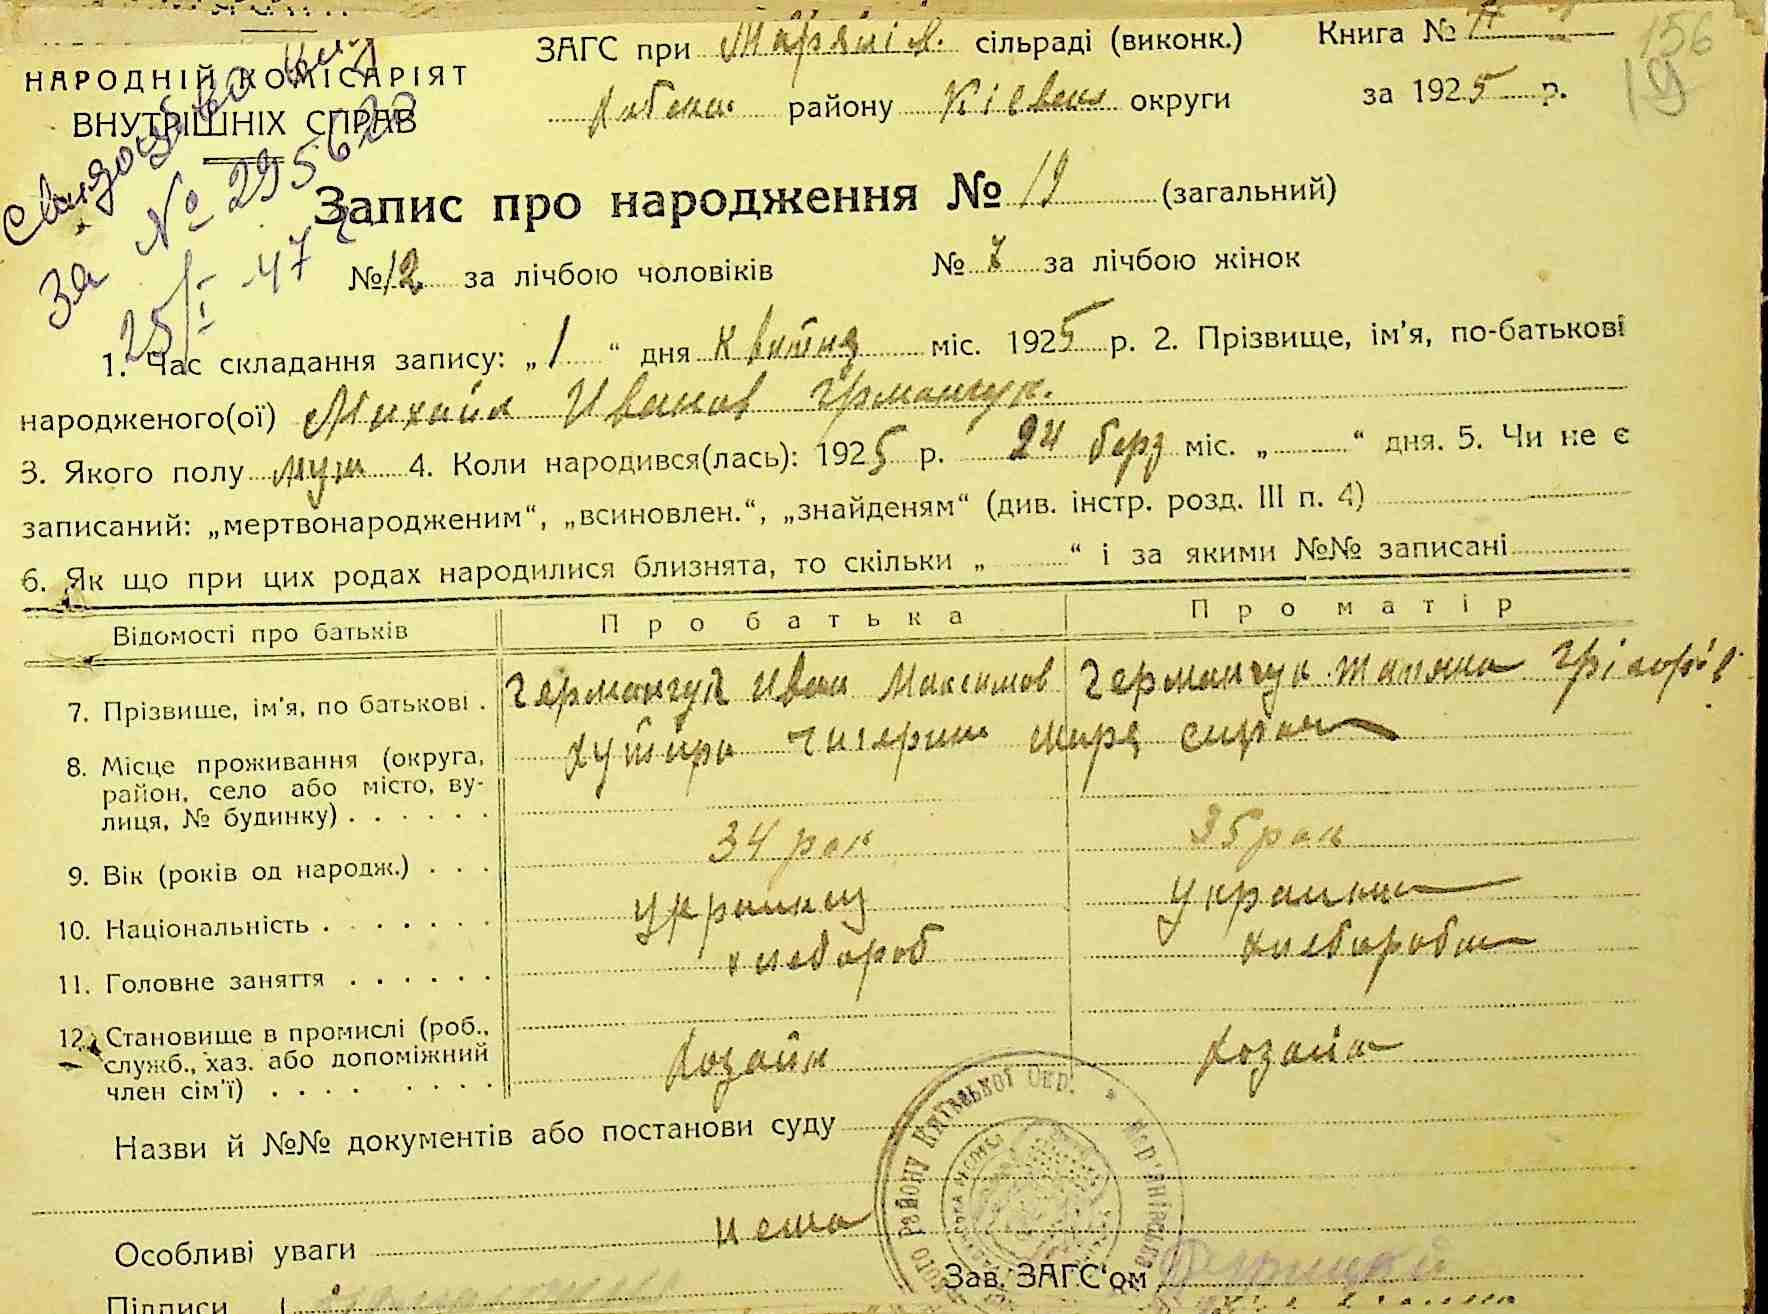 НАРОДНІЙ КОМІСАРІЯТ
ВНУТРІШНІХ СПРАВ
ЗАГС при Мар'янів. сільраді (виконк.)
району Київськ округи
Книга №
за 1925 р.
156
19
за № 295622
25/I -47 р.
Запис про народження № 19 (загальний)
№ 12 за лічбою чоловіків № 7 за лічбою жінок
1. Час складання запису: „1“ дня Квітня міс. 1925 р. 2. Прізвище, ім'я, по-батькові
народженого(ої) Михайл Иванов Германчук.
3. Якого полу муж 4. Коли народився(лась): 1925 р. 24 берз міс. „ “ дня. 5. Чи не є
записаний: „мертвонародженим“, „всиновлен.“, „знайденям“ (див. інстр. розд. III п. 4)
6. Як що при цих родах народилися близнята, то скільки „ “ і за якими №№ записані
Відомості про батьків Про батька Про матір
7. Прізвище, ім'я, по батькові . Германчук Иван Максимов Германчук Татяна Грігорів.
8. Місце проживання (округа, район, село або місто, вулиця, № будинку) . . . . . . Хутора
9. Вік (років од народж.) . . . 34 рок 35 рок
10. Національність . . . . . . . Українец Українка
11. Головне заняття . . . . . . хлебороб хлеборобка
12. Становище в промислі (роб., служб., хаз. або допоміжний член сім'ї) . . . . . . . . Хозяйн Хозяйка
Назви й №№ документів або постанови суду
Особливі уваги нема
Зав. ЗАГС'ом
Підписи
району Київської Окр. * Мар'янівська